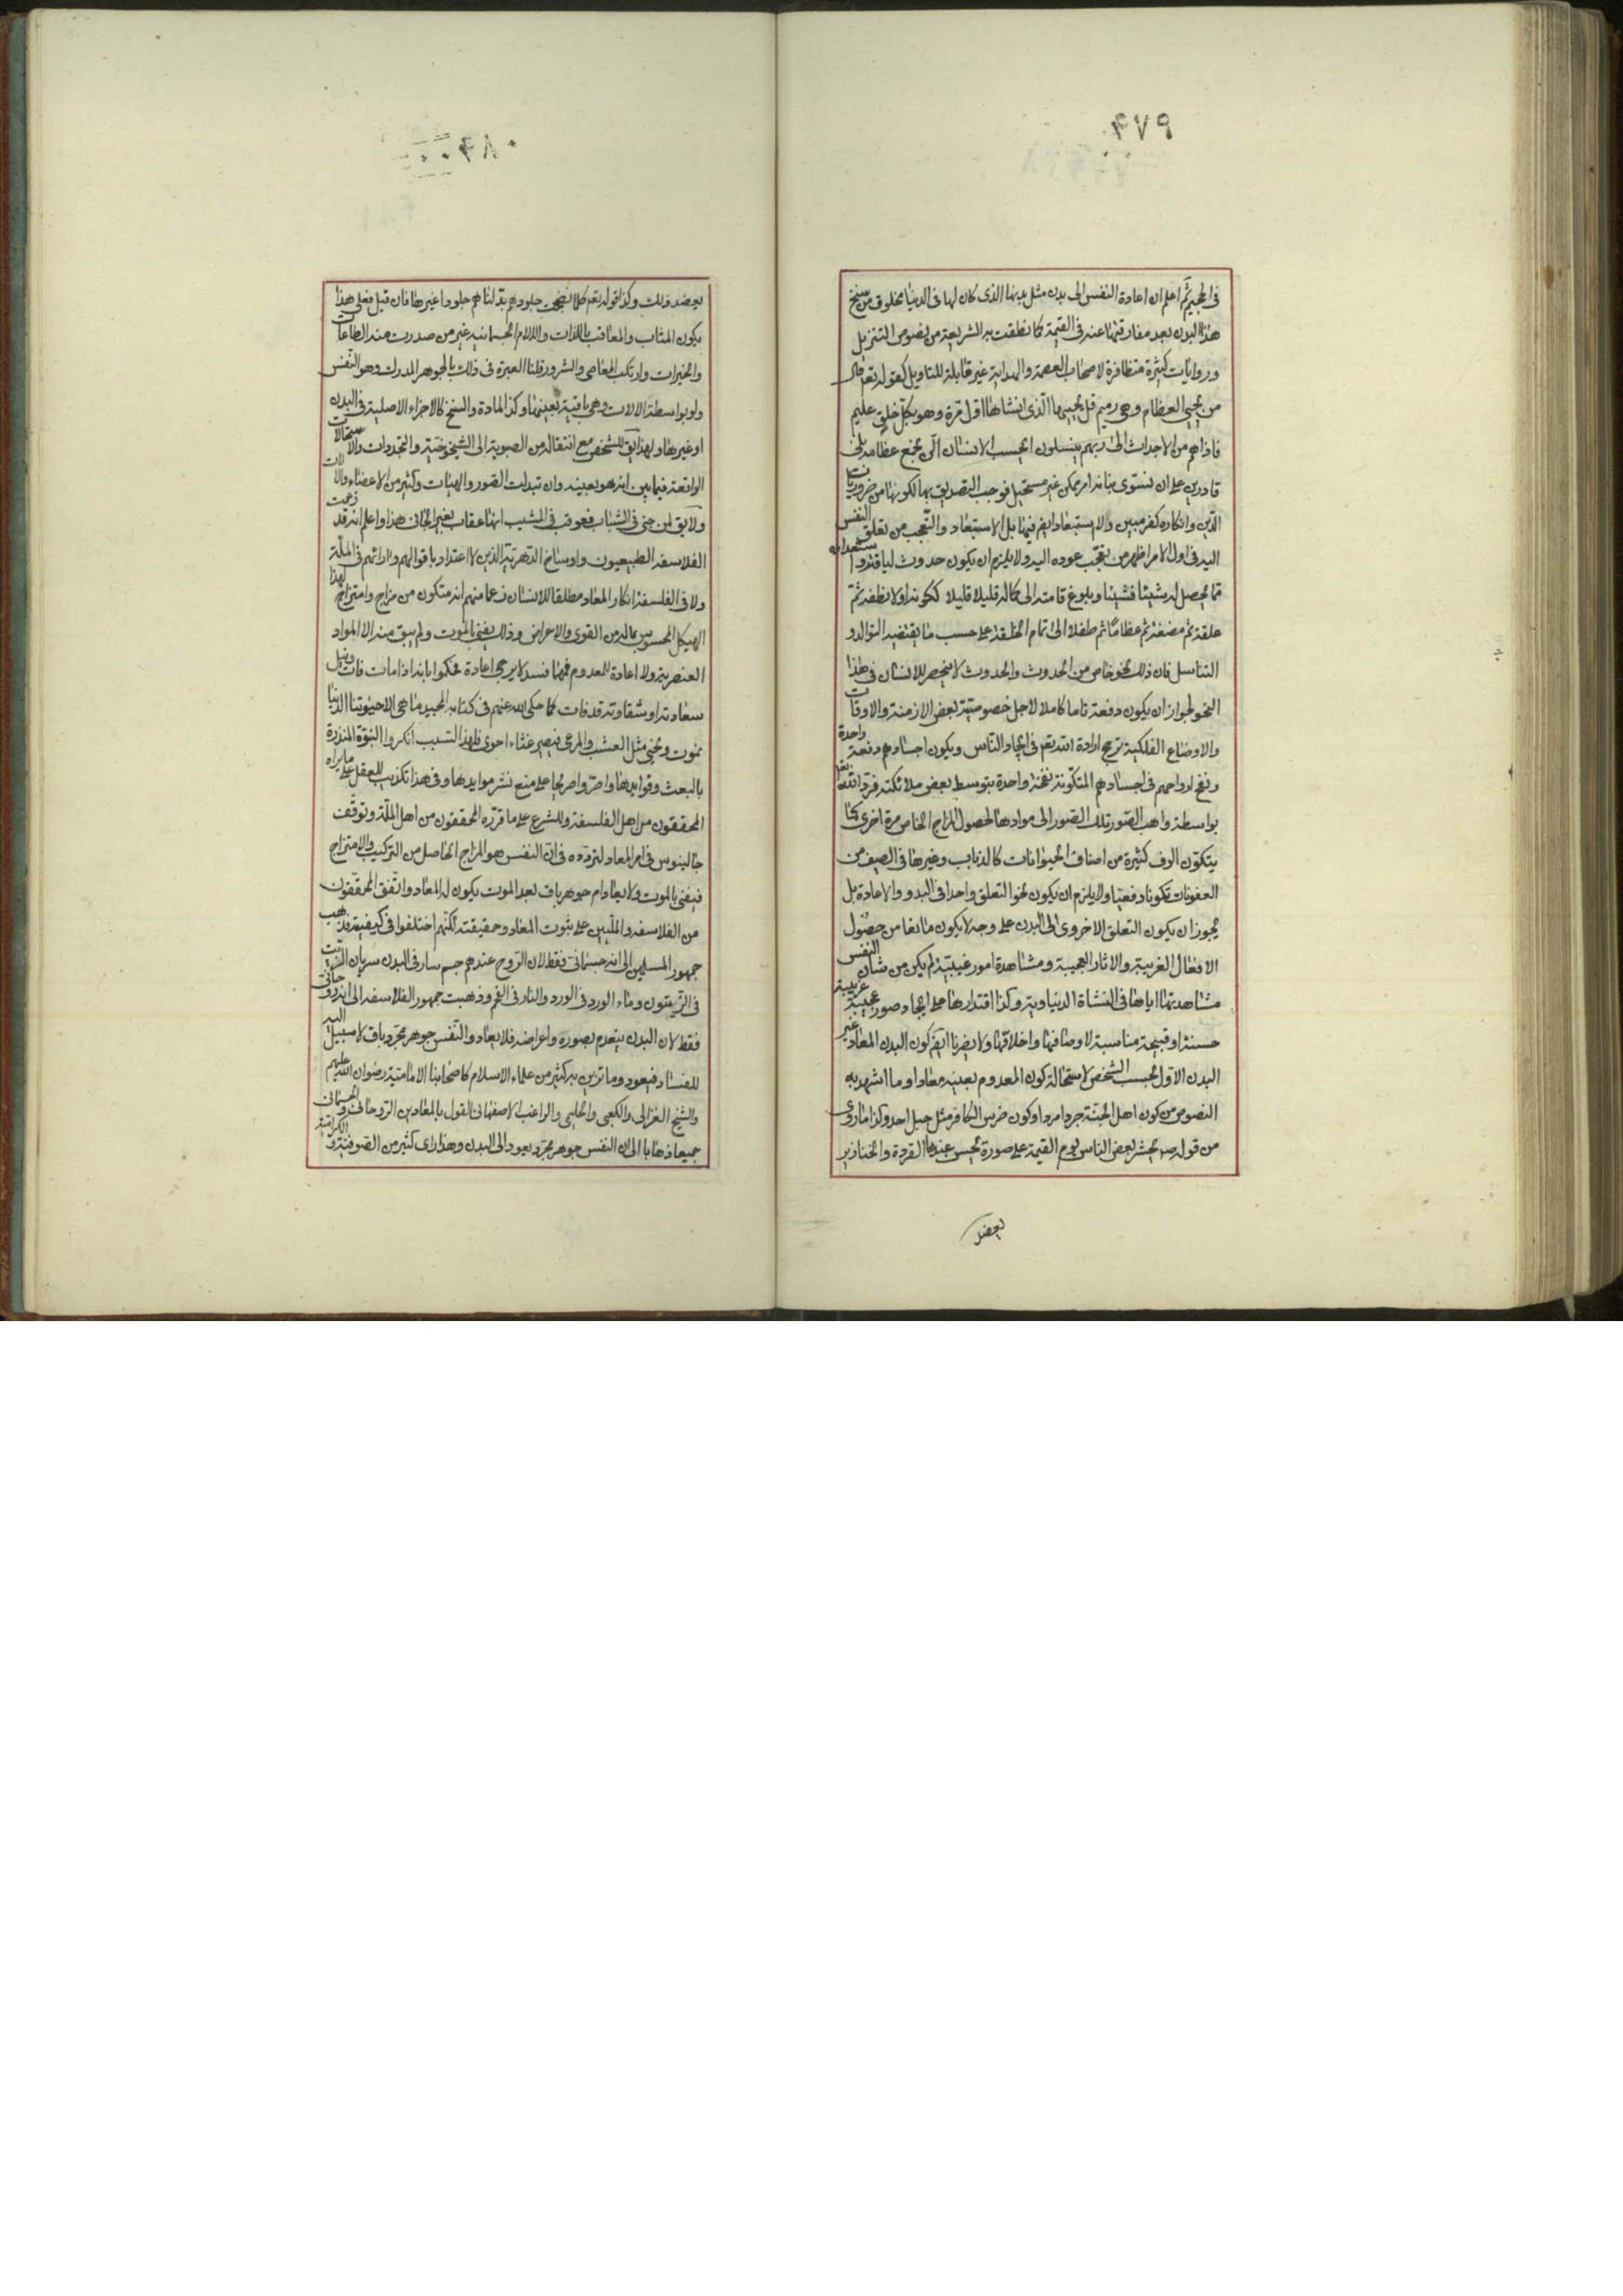 ٩٧٩
في الجحيم ثم اعلم ان اعادة النفس الى بدن مثل بدنها الذى كان لها فى الدنيا مخلوق من سنخ
هذا البدن بعد مفارقتها عنه فى القيمة كما نطقت به الشريعة من نصوص التنزيل
وروايات كثيرة متظافرة لاصحاب العصمة والهداية غير قابلة للتاويل كقوله تعالى قال
من يحيى العظام وهى رميم قل يحييها الذى انشاها اول مرة وهو بكل خلق عليم
فاذاهم من الاجداث الى ربهم ينسلون ايحسب الانسان الّن نجمع عظامه بلى
قادرين على ان نسوى بنانه امر ممكن غير مستحيل فوجب التصديق بها لكونها من ضروريات
الدين وانكاره كفر مبين ولا استبعاد ايضا فيها بل الاستبعاد والتعجب من تعلق النفس
اليه فى اول الامر اظهر من تعجب عوده اليه ولا يلزم ان يكون حدوث
مما يحصل له شيئا فشيئا وبلوغ قامته الى كماله قليلا قليلا ككونه اولا نطفة ثم
علقة ثم مضغة ثم عظاما ثم طفلا الى تمام الخلقة على حسب ما يقتضيه التوالد و
التناسل فان ذلك نحو خاص من الحدوث والحدوث لا ينحصر للانسان فى هذا
النحو لجواز ان يكون دفعة تاما كاملا لاجل خصوصية بعض الازمنة والاوقات
والاوضاع الفلكية ترجح ارادة الله تعم فى ايجاد الناس ويكون اجسادهم دفعة واحدة
ونفخ ارواحهم فى اجسادهم المتكونة نفخة واحدة بتوسط بعض ملائكته فرد الله تعم
بواسطة واهب الصور تلك الصور الى موادها لحصول المزاج الخاص مرة اخرى كما
يتكون الوف كثيرة من اصناف الحيوانات كالذباب وغيرها فى الصيف من
العفونات تكونا دفعيا ولا يلزم ان يكون نحو التعلق واحدا فى البدو والاعادة بل
يجوز ان يكون التعلق الاخروى الى البدن على وجه لا يكون مانعا من حصول
الافعال الغريبة والاثار العجيبة ومشاهدة امور غيبية لم يكن من شان النفس
مشاهدتها اياها فى النشاة الدنياوية وكذا اقتدارها على ايجاد صور عجيبة غريبة
حسنة او قبيحة مناسبة لاوصافها واخلاقها ولا يضرنا ايضا كون البدن المعاد غير
البدن الاول بحسب الشخص لاستحالة كون المعدوم بعينه معادا وما اشهد به
النصوص من كون اهل الجنة جرد امردا وكون ضرس الكافر مثل جبل احد وكذا ما روى
من قوله ص يحشر بعض الناس يوم القيمة على صورة يحسن عندها القردة والخنازير
يعضد
٩٨٠
يعضد ذلك وكذا قوله تعم كلما نضجت جلودهم بدلناهم جلودا غيرها فان قيل فعلى هذا
يكون المثاب والمعاقب باللذات والالام الجسمانية غير من صدرت منه الطاعات
والخيرات وارتكب المعاصى والشرور قلنا العبرة فى ذلك بالجوهر المدرك وهو النفس
ولو بواسطة الالات وهى باقية بعينها وكذا المادة والسنخ كالاجزاء الاصلية فى البدن
او غيرها ولهذا يق للشخص مع انتقاله من الصبوية الى الشيخوخية والتجددات والاستحالات
الواقعة فيما بين انه هو بعينه وان تبدلت الصور والهيئات وكثير من الاعضاء والالات
ولا يق لمن جنى فى الشباب فعوقب فى المشيب انها عقاب لغير الجانى هذا واعلم انه قد زعمت
الفلاسفه الطبيعيون واوساخ الدهرية الذين لا اعتداد باقوالهم وارائهم فى الملة
ولا فى الفلسفة انكار المعاد مطلقا للانسان زعما منهم انه متكون من مزاج وامتزاج لهذا
الهيكل المحسوس بما له من القوى والاعراض وذلك يفنى بالموت ولم يبق منه الا المواد
العنصرية ولا اعادة للمعدوم فمهما فسد لا يرجى اعادة فحكموا بانه اذا مات فات
سعادته او شقاوته قد فات كما حكى الله عنهم فى كتابه المجيد ما هى الا حيوتنا الدنيا
نموت ونحيى مثل العشب والمرعى فيصير غثاء احوى فلهذا السبب انكروا النبوة المنذرة
بالبعث وفى هذا تكذيب للعقل على ما يراه
المحققون من اهل الفلسفة وللشرع على ما قرره المحققون من اهل الملة وتوقف
جالينوس فى امر المعاد لتردده فى ان النفس هو المزاج الحاصل من التركيب والامتزاج
فيفنى بالموت ولا يعاد ام جوهر باق بعد الموت يكون له المعاد واتفق المحققون
من الفلاسفه والمليين على ثبوت المعاد وحقيقته لكنهم اختلفوا فى كيفيته فذهب
جمهور المسلمين الى انه جسمانى فقط لان الروح عندهم جسم سار فى البدن سريان الزيت
فى الزيتون وماء الورد فى الورد والنار فى الفحم وذهبت جمهور الفلاسفه الى انه روحانى
فقط لان البدن ينعدم بصوره واعراضه فلا يعاد والنفس جوهر مجرد باق لا سبيل اليه
للفساد فيعود وما تزين به كثير من علماء الاسلام كاصحابنا الامامية رضوان الله عليهم
والشيخ الغزالى والكعبى والحليمى والراغب الاصفهانى القول بالمعادين الروحانى والجسمانى
جميعا ذهابا الى ان النفس جوهر مجرد يعود الى البدن وهذا راى كثير من الصوفية والكرامية